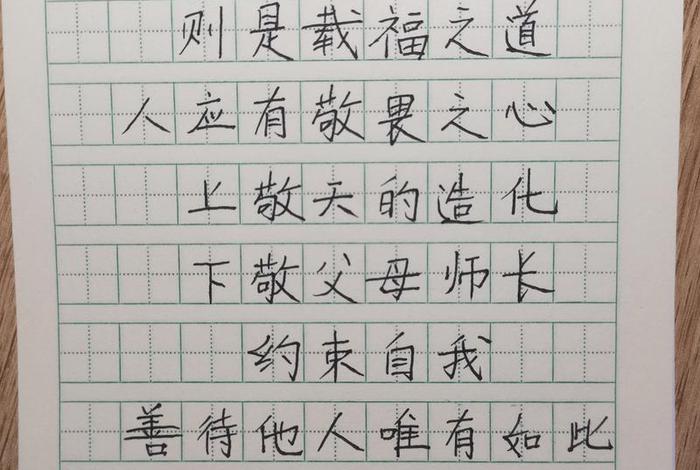 则是载福之道
人应有敬畏之心
上敬天的造化
下敬父母师长
约束自我
善待他人唯有如此